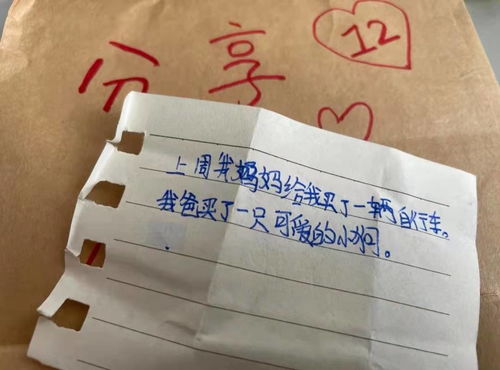 分享
12
上周我妈妈给我买了一辆自行车。
我爸买了一只可爱的小狗。